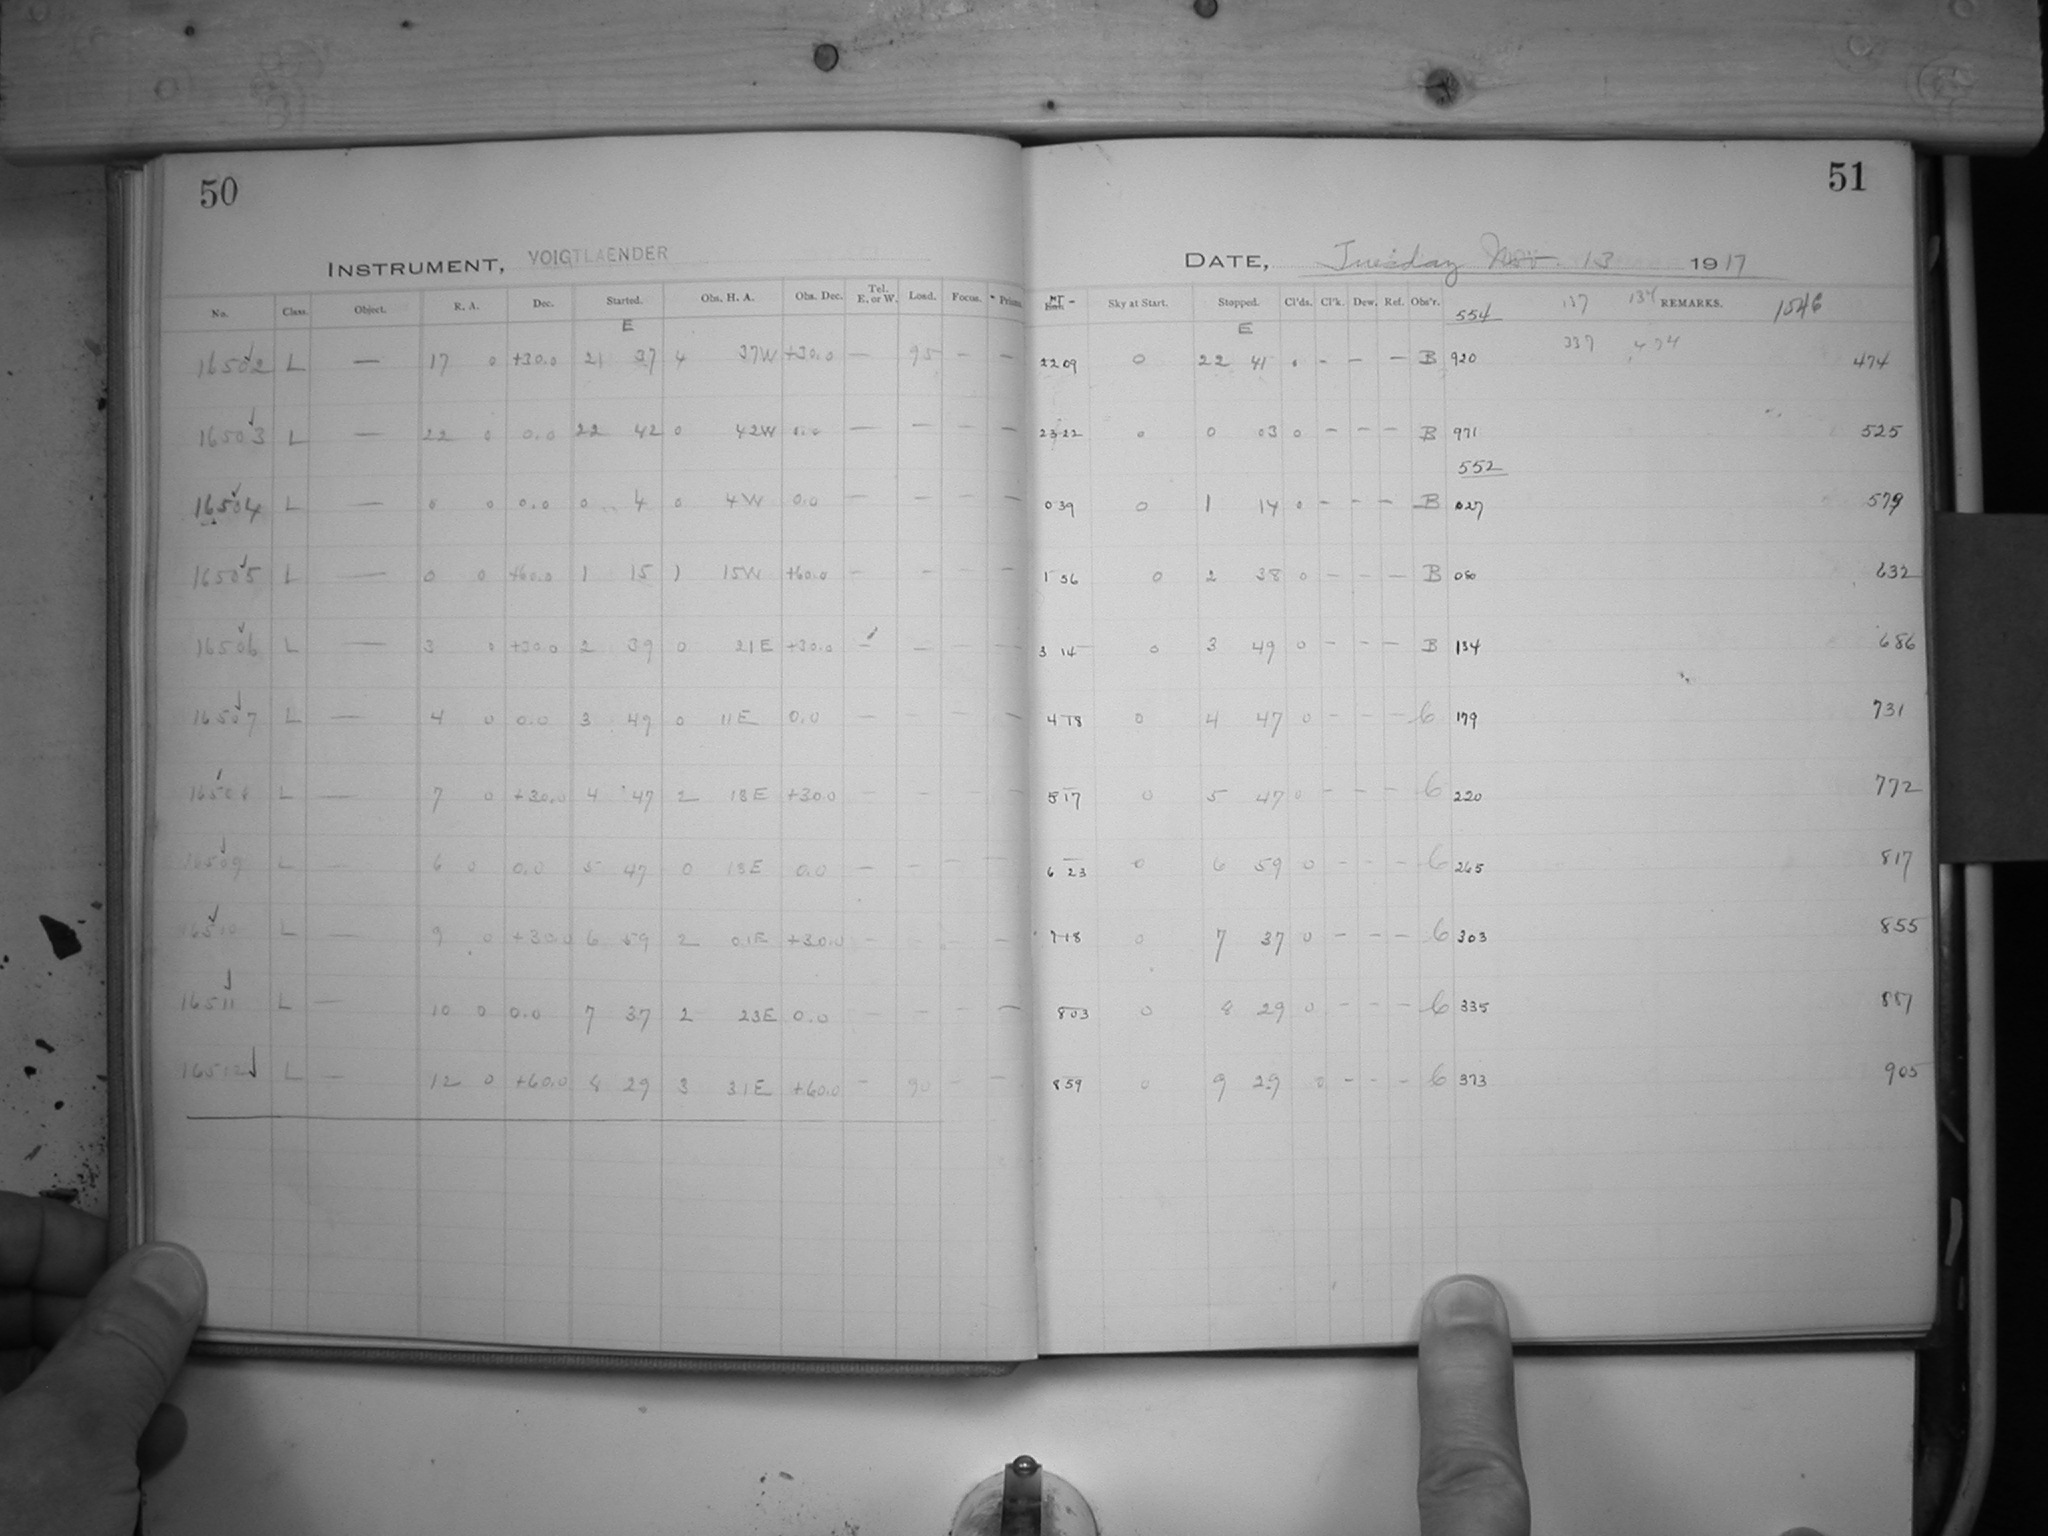 50
51
INSTRUMENT, VOIGTLAENDER
DATE, Tuesday Nov. 13 1917
No. Class. Object. R. A. Dec. Started. Obs. H. A. Obs. Dec. Tel. E. or W. Load. Focus. Prism. Sky at Start. Stopped. Cl'ds. Cl'k. Dew. Ref. Obs'r. 554 137 134 REMARKS. 1546
E E 337
16502 L — 17 0 +30.0 21 37 4 37W +30.0 — 95 — — 22 09 0 22 41 0 - - - B 920 474
16503 L — 22 0 0.0 22 42 0 42W 0.0 — — — — 23 22 0 0 03 0 - - - B 971 525
552
16504 L — 0 0 0.0 0 4 0 4W 0.0 — — — — 0 39 0 1 14 0 - - - B 027 579
16505 L — 0 0 +60.0 1 15 1 15W +60.0 — — — — 1 56 0 2 38 0 - - - B 080 632
16506 L — 3 0 +30.0 2 39 0 21E +30.0 — — — — 3 14 0 3 49 0 - - - B 134 686
16507 L — 4 0 0.0 3 49 0 11E 0.0 — — — 4 18 0 4 47 0 - - - 6 179 731
16508 L — 7 0 +30.0 4 47 2 18E +30.0 — — — — 5 17 0 5 47 0 - - - 6 220 772
16509 L — 6 0 0.0 5 47 0 13E 0.0 — — — — 6 23 0 6 59 0 - - - 6 265 817
16510 L — 9 0 +30.0 6 59 2 01E +30.0 — — — — 7 18 0 7 37 0 - - - 6 303 855
16511 L — 10 0 0.0 7 37 2 23E 0.0 — — — — 8 03 0 8 29 0 - - - 6 335 887
16512 L — 12 0 +60.0 8 29 3 31E +60.0 — 90 — — 8 59 0 9 29 0 - - - 6 373 905